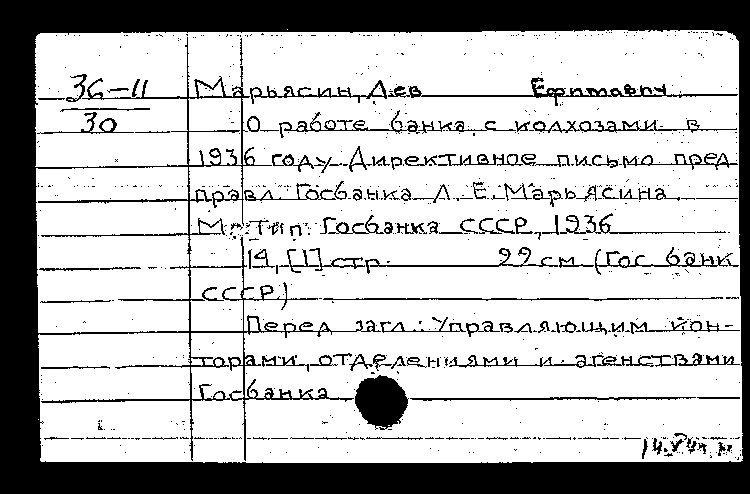 36-11
30
Марьясин, Лев Ефимович
О работе банка с колхозами в
1936 году. Директивное письмо пред
правл. Госбанка Л. Е. Марьясина.
М., Тип. Госбанка СССР, 1936
14, [1] стр. 22 см (Гос банк
СССР)
Перед загл.: Управляющим кон-
торами, отделениями и агенствами
Госбанка